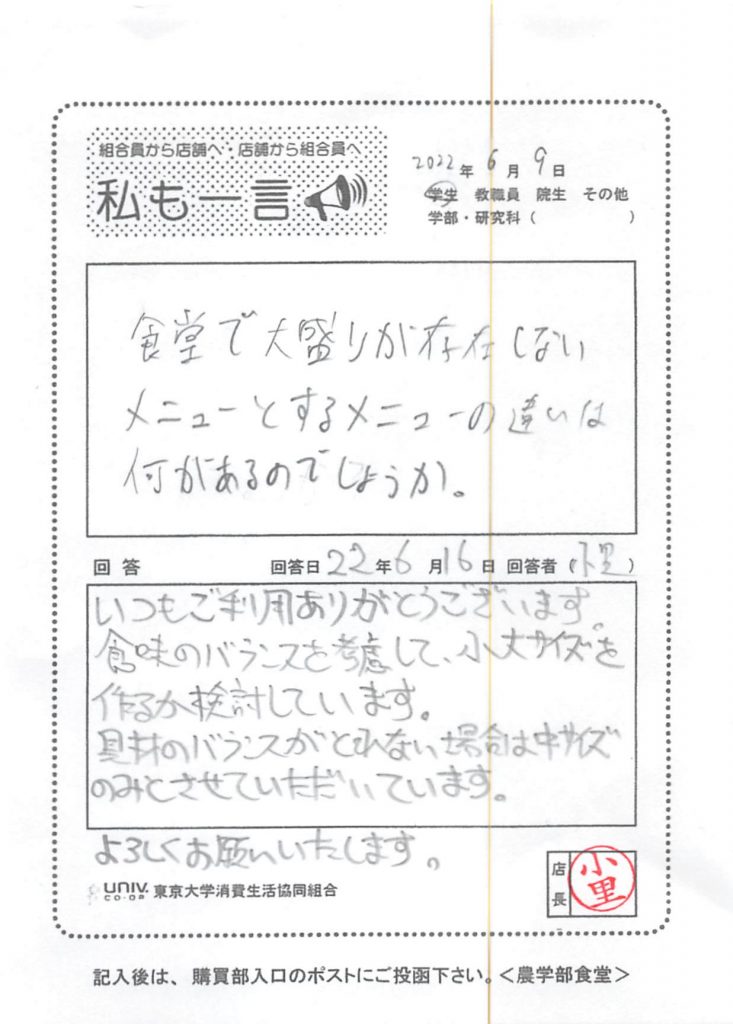 組合員から店舗へ・店舗から組合員へ
私も一言
2022年6月9日
学生 教職員 院生 その他
学部・研究科（ ）
食堂で大盛りが存在しない
メニューとするメニューの違いは
何があるのでしょうか。
回答 回答日22年6月16日 回答者（小里）
いつもご利用ありがとうございます。
食味のバランスを考慮して、小大サイズを
作るか検討しています。
具材のバランスがとれない場合は中サイズ
のみとさせていただいています。
よろしくお願いいたします。
UNIV. CO-OP 東京大学消費生活協同組合
店長 小里
記入後は、購買部入口のポストにご投函下さい。＜農学部食堂＞